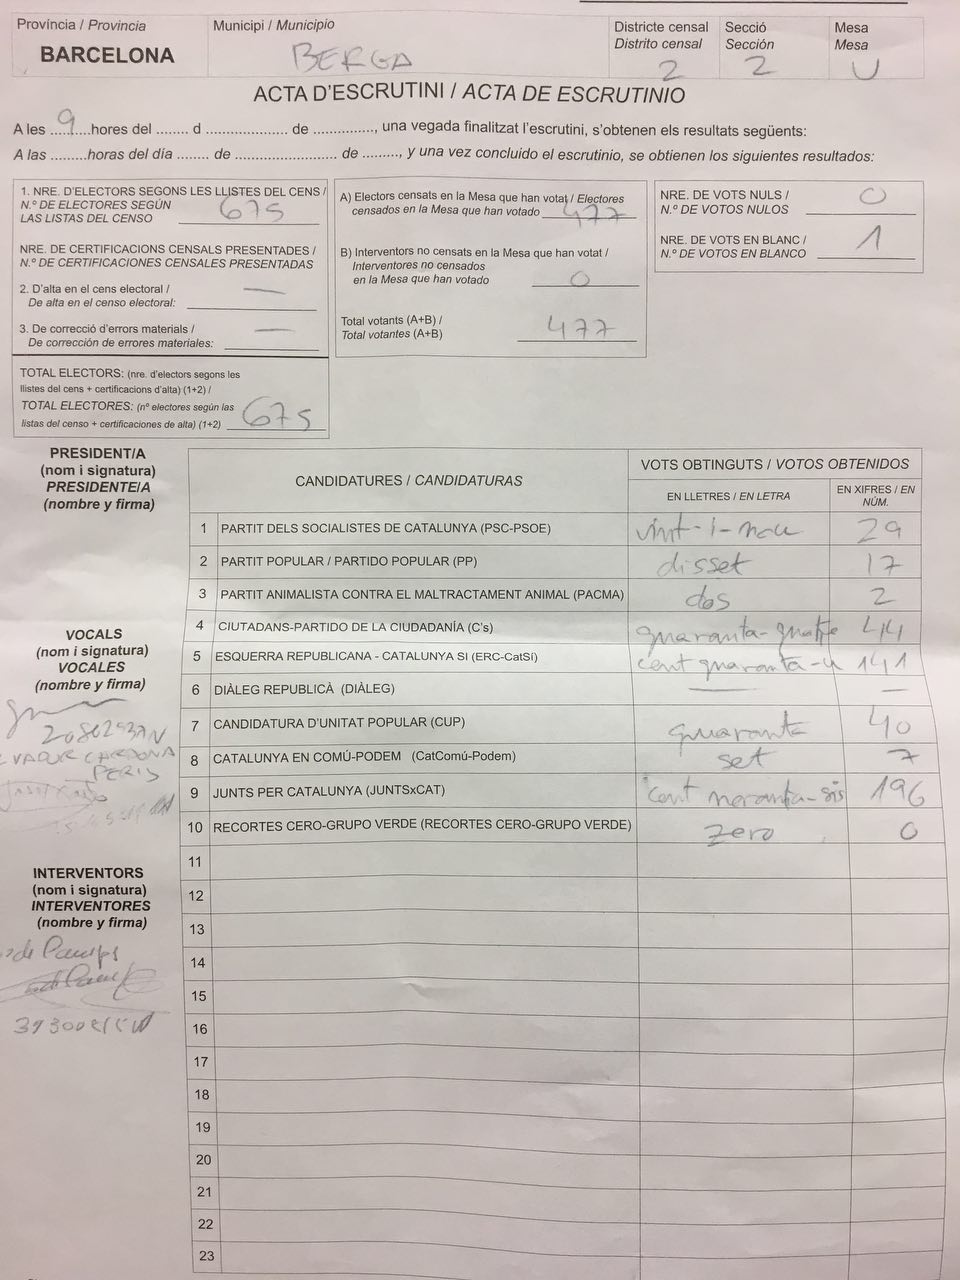 Província / Provincia
BARCELONA
Municipi / Municipio
BERGA
Districte censal
Distrito censal
2
Secció
Sección
2
Mesa
Mesa
U
ACTA D'ESCRUTINI / ACTA DE ESCRUTINIO
A les ...9...hores del ........ d .................... de ..............., una vegada finalitzat l'escrutini, s'obtenen els resultats següents:
A las .........horas del día ........ de ......................... de ........., y una vez concluido el escrutinio, se obtienen los siguientes resultados:
1. NRE. D'ELECTORS SEGONS LES LLISTES DEL CENS /
N.º DE ELECTORES SEGÚN
LAS LISTAS DEL CENSO 675
NRE. DE CERTIFICACIONS CENSALS PRESENTADES /
N.º DE CERTIFICACIONES CENSALES PRESENTADAS
2. D'alta en el cens electoral / —
De alta en el censo electoral:
3. De correcció d'errors materials / —
De corrección de errores materiales:
TOTAL ELECTORS: (nre. d'electors segons les
llistes del cens + certificacions d'alta) (1+2) /
TOTAL ELECTORES: (nº electores según las
listas del censo + certificaciones de alta) (1+2) 675
A) Electors censats en la Mesa que han votat / Electores
censados en la Mesa que han votado 477
B) Interventors no censats en la Mesa que han votat /
Interventores no censados
en la Mesa que han votado 0
Total votants (A+B) /
Total votantes (A+B) 477
NRE. DE VOTS NULS /
N.º DE VOTOS NULOS 0
NRE. DE VOTS EN BLANC /
N.º DE VOTOS EN BLANCO 1
PRESIDENT/A
(nom i signatura)
PRESIDENTE/A
(nombre y firma)
VOCALS
(nom i signatura)
VOCALES
(nombre y firma)
CARDONA
PERIS
INTERVENTORS
(nom i signatura)
INTERVENTORES
(nombre y firma)
CANDIDATURES / CANDIDATURAS
VOTS OBTINGUTS / VOTOS OBTENIDOS
EN LLETRES / EN LETRA
EN XIFRES / EN
NÚM.
1 PARTIT DELS SOCIALISTES DE CATALUNYA (PSC-PSOE) vint-i-nou 29
2 PARTIT POPULAR / PARTIDO POPULAR (PP) disset 17
3 PARTIT ANIMALISTA CONTRA EL MALTRACTAMENT ANIMAL (PACMA) dos 2
4 CIUTADANS-PARTIDO DE LA CIUDADANÍA (C's) quaranta-quatre 44
5 ESQUERRA REPUBLICANA - CATALUNYA SI (ERC-CatSí) cent quaranta-u 141
6 DIÀLEG REPUBLICÀ (DIÀLEG) — —
7 CANDIDATURA D'UNITAT POPULAR (CUP) quaranta 40
8 CATALUNYA EN COMÚ-PODEM (CatComú-Podem) set 7
9 JUNTS PER CATALUNYA (JUNTSxCAT) cent noranta-sis 196
10 RECORTES CERO-GRUPO VERDE (RECORTES CERO-GRUPO VERDE) zero 0
11
12
13
14
15
16
17
18
19
20
21
22
23